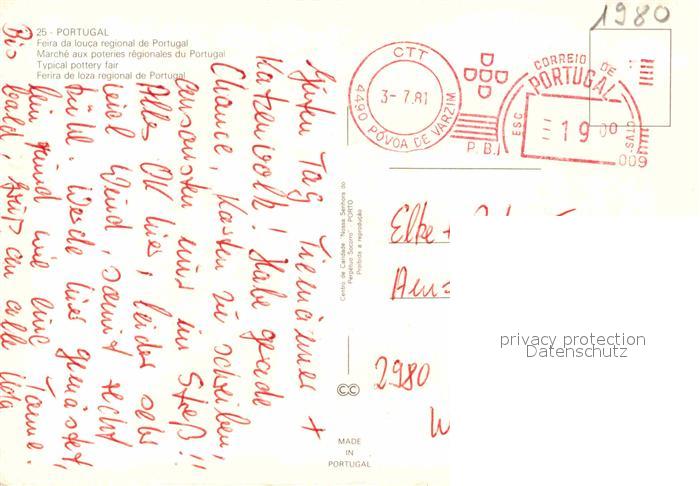 1980
25 - PORTUGAL
Feira da louça regional de Portugal
Marché aux poteries régionales du Portugal
Typical pottery fair
Ferira de loza regional de Portugal
CTT
3-7.81
4490 PÓVOA DE VARZIM
P.B.
CORREIO DE
PORTUGAL
ESC
19 00
CTVS
009
Guten Tag Tiemänner +
Katzenvolk! Habe gerade
Chance, Karten zu schreiben,
ansonsten nur im Streß!!
Alles OK hier, leider sehr
viel Wind, somit recht
kühl. Werde hier gemästet,
bin rund wie eine Tonne.
Bis bald, Gruß an alle
Centro de Caridade "Nossa Senhora do
Perpétuo Socorro" PORTO
Proibida a reprodução
Elke +
2980
CC
MADE
IN
PORTUGAL
privacy protection
Datenschutz